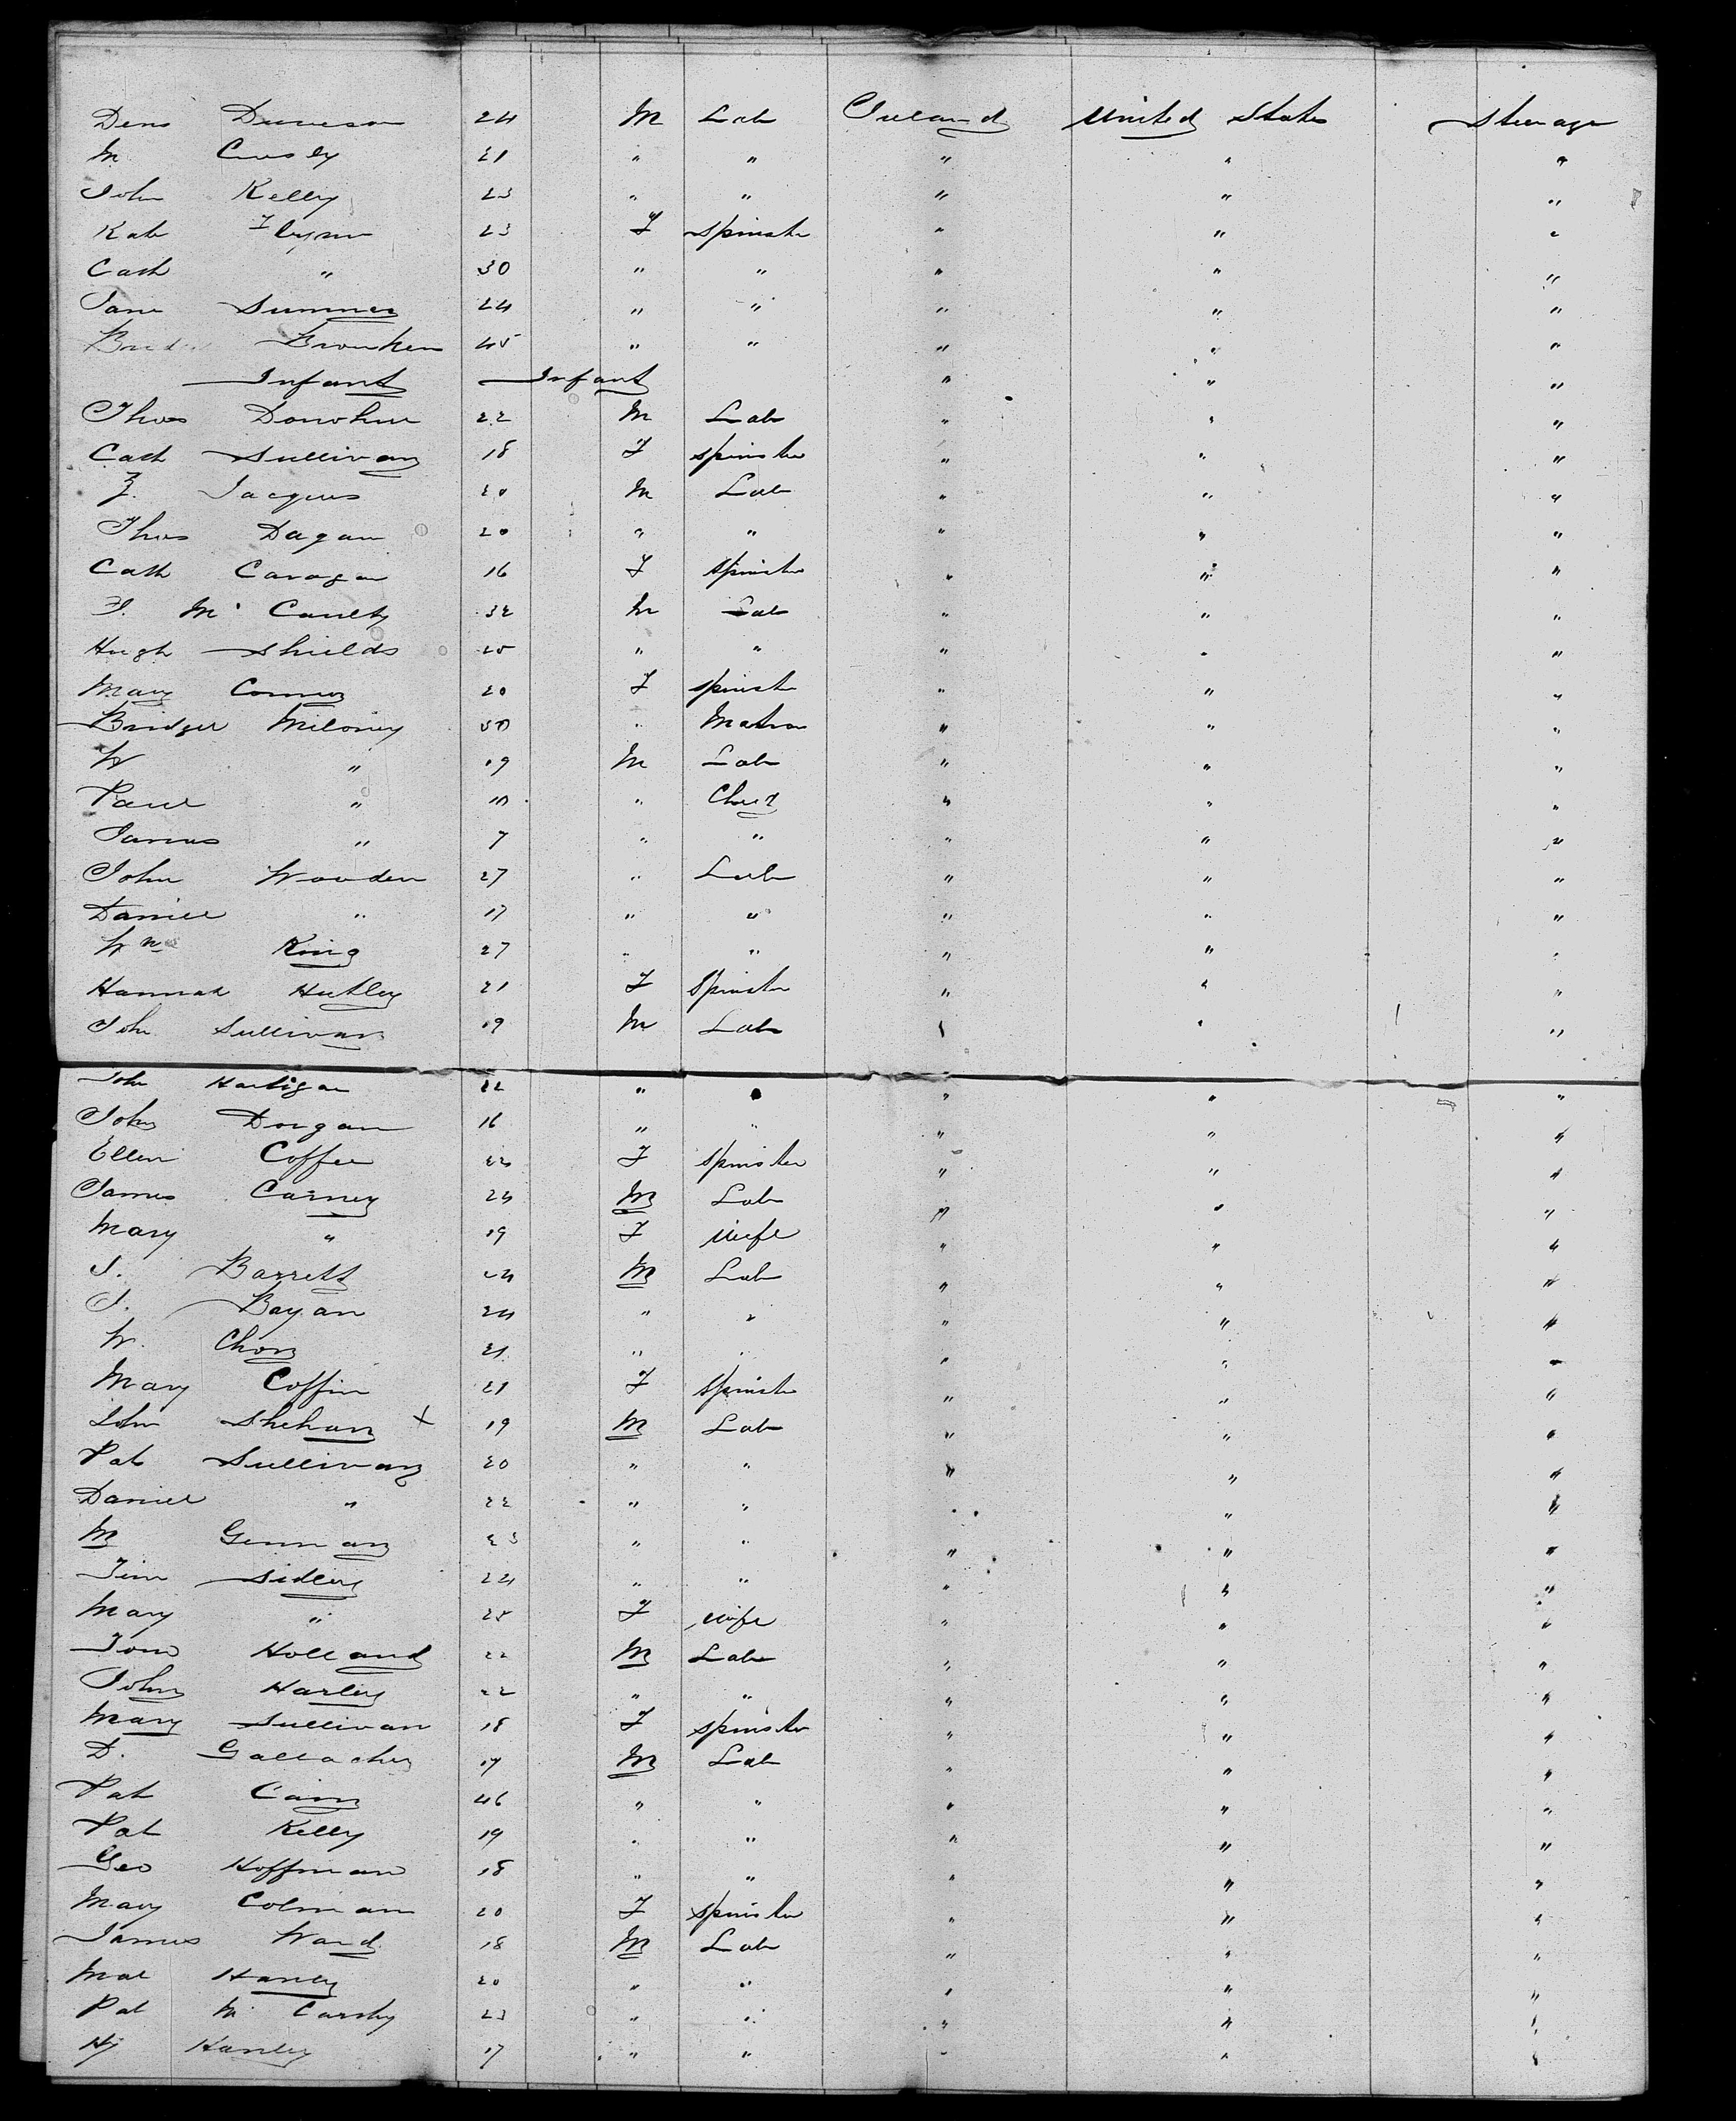 Denis Duneson 24 M Lab Ireland United States Steerage
M Crosby 21 " " " " "
John Kelly 23 " " " " "
Kate Flynn 23 F Spinster " " "
Cath " 30 " " " " "
Jane Summer 24 " " " " "
Brid Brouken 45 " " " " "
Infant Infant " " "
Thos Donohue 22 M Lab " " "
Cath Sullivan 18 F Spinster " " "
F. Jacques 20 M Lab " " "
Thos Dagan 20 " " " " "
Cath Caragan 16 F Spinster " " "
J. Mc Caulty 32 M Lab " " "
Hugh Shields 25 " " " " "
Mary Connor 20 F Spinster " " "
Bridget Miloney 50 " Matron " " "
W " 19 M Lab " " "
Paul " 10 " Child " " "
James " 7 " " " " "
John Wooden 27 " Lab " " "
Daniel " 17 " " " " "
Wm King 27 " " " " "
Hannah Hutley 21 F Spinster " " "
John Sullivan 19 M Lab " " "
John Hartigan 22 " " " " "
John Dougan 16 " " " " "
Ellen Coffee 22 F Spinster " " "
James Carney 24 M Lab " " "
Mary " 19 F Wife " " "
J. Barrett 24 M Lab " " "
J. Bogan 24 " " " " "
W. Chon 21 " " " " "
Mary Coffin 21 F Spinster " " "
John Shehan x 19 M Lab " " "
Pat Sullivan 20 " " " " "
Daniel " 22 " " " " "
M Gennan 23 " " " " "
Tim Sidley 24 " " " " "
Mary " 25 F Wife " " "
Tom Holland 22 M Lab " " "
John Harley 22 " " " " "
Mary Sullivan 18 F Spinster " " "
D. Gallacher 17 M Lab " " "
Pat Cain 46 " " " " "
Pat Kelly 19 " " " " "
Geo Hoffman 18 " " " " "
Mary Colman 20 F Spinster " " "
James Ward 18 M Lab " " "
Mal Hanley 20 " " " " "
Pat Mc Carthy 23 " " " " "
Hy Hanley 17 " " " " "